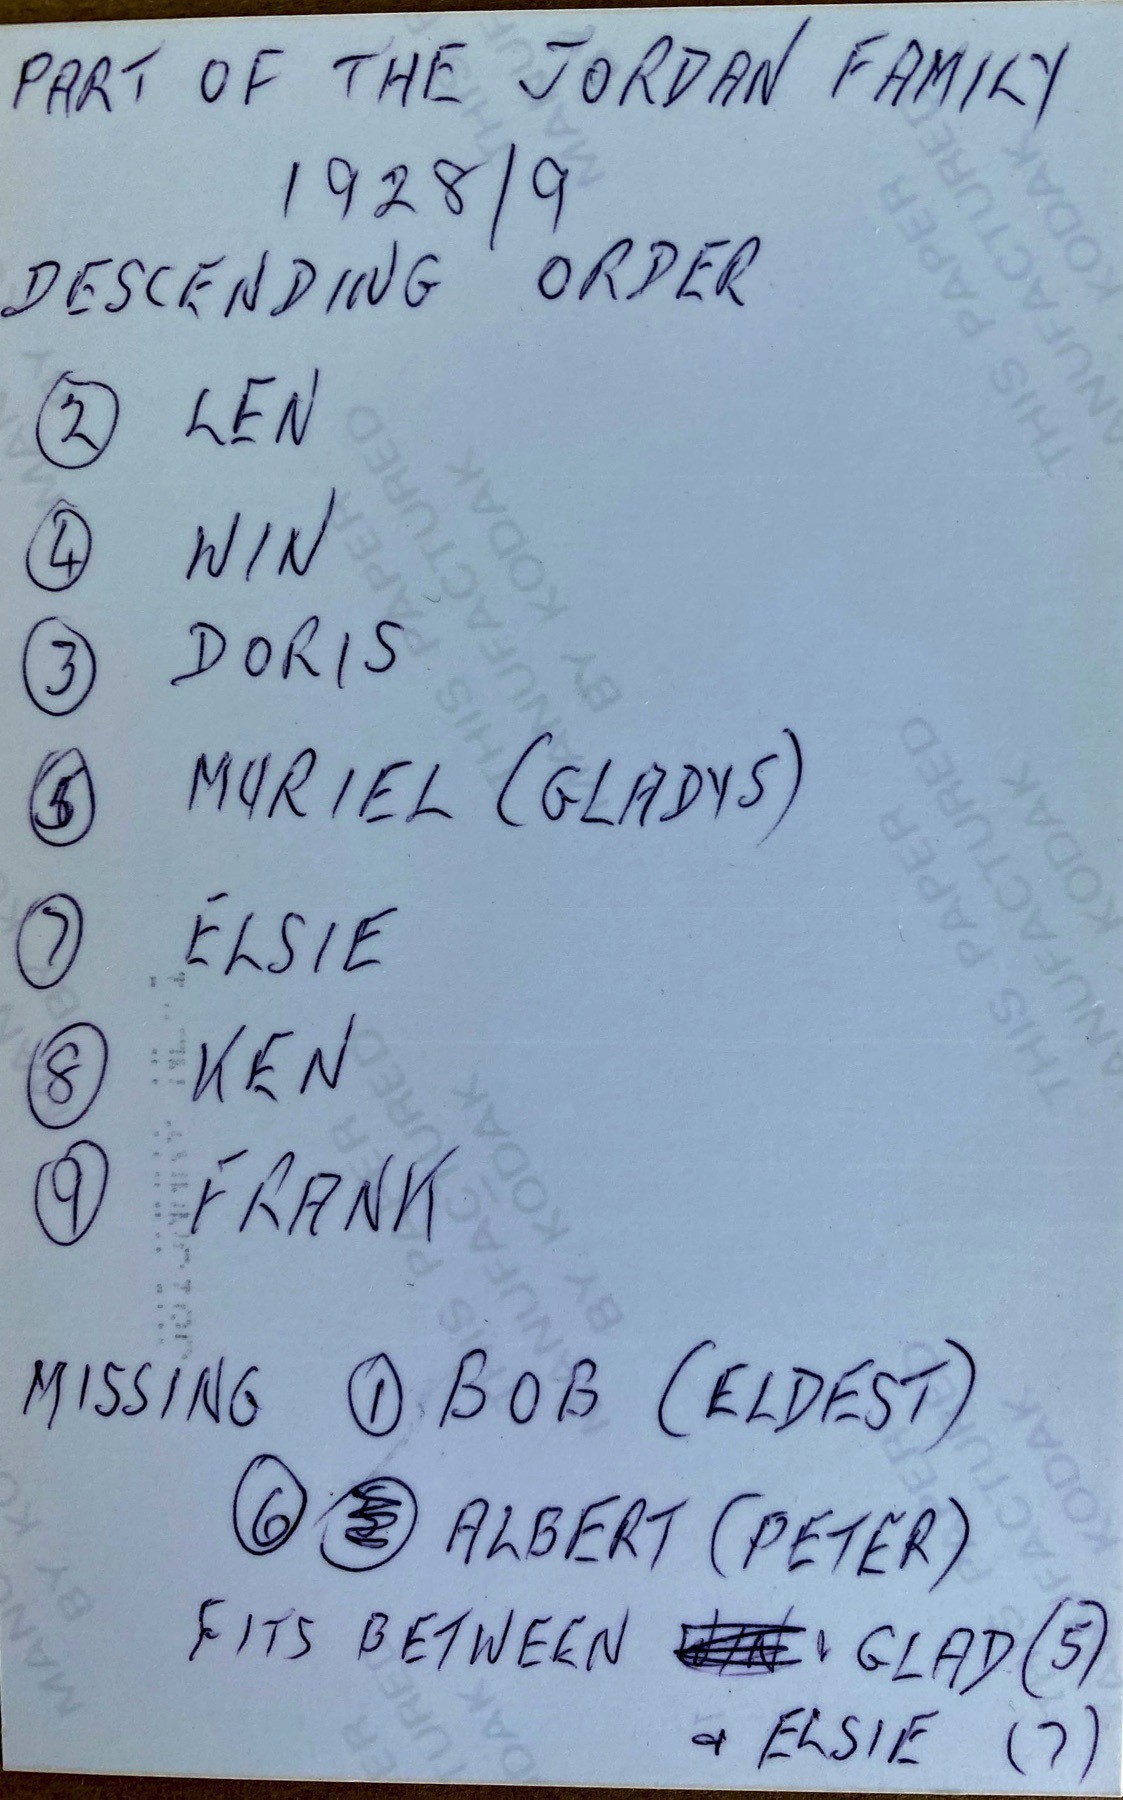 PART OF THE JORDAN FAMILY
1928/9
DESCENDING ORDER
2 LEN
4 WIN
3 DORIS
5 MURIEL (GLADYS)
7 ELSIE
8 KEN
9 FRANK
MISSING 1 BOB (ELDEST)
6 ALBERT (PETER)
FITS BETWEEN GLAD (5)
& ELSIE (7)
THIS PAPER
MANUFACTURED
BY KODAK